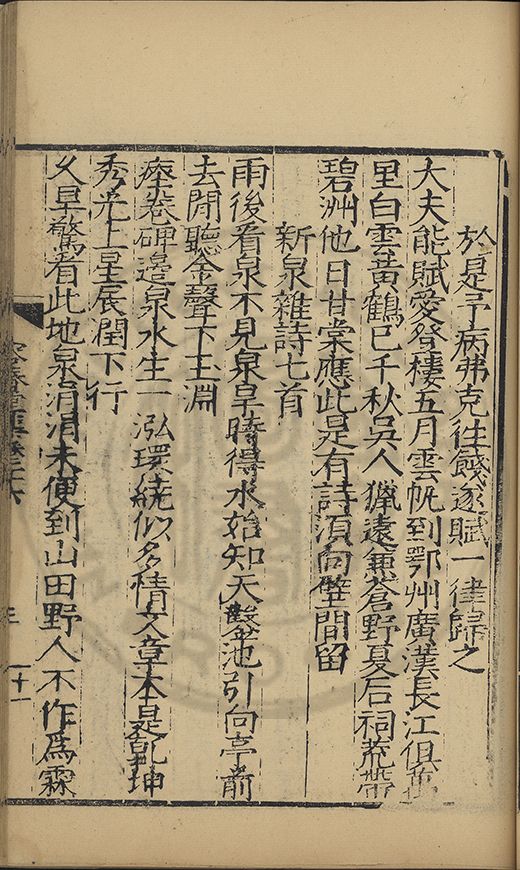 於是予病弗克往餞遂賦一律歸之
大夫能賦愛登樓五月雲帆到鄂州廣漢長江俱萬
里白雲黃鶴已千秋吳人獵遠兼蒼野夏后祠荒帶
碧洲他日甘棠應此是有詩須向壁間留
新泉雜詩七首
雨後看泉不見泉旱時得水始知天鑿池引向亭前
去閒聽金聲下玉淵
瘞卷碑邊泉水生一泓環繞似多情文章本是乾坤
秀光上星辰潤下行
久旱驚看此地泉涓涓未便到山田野人不作爲霖
十一